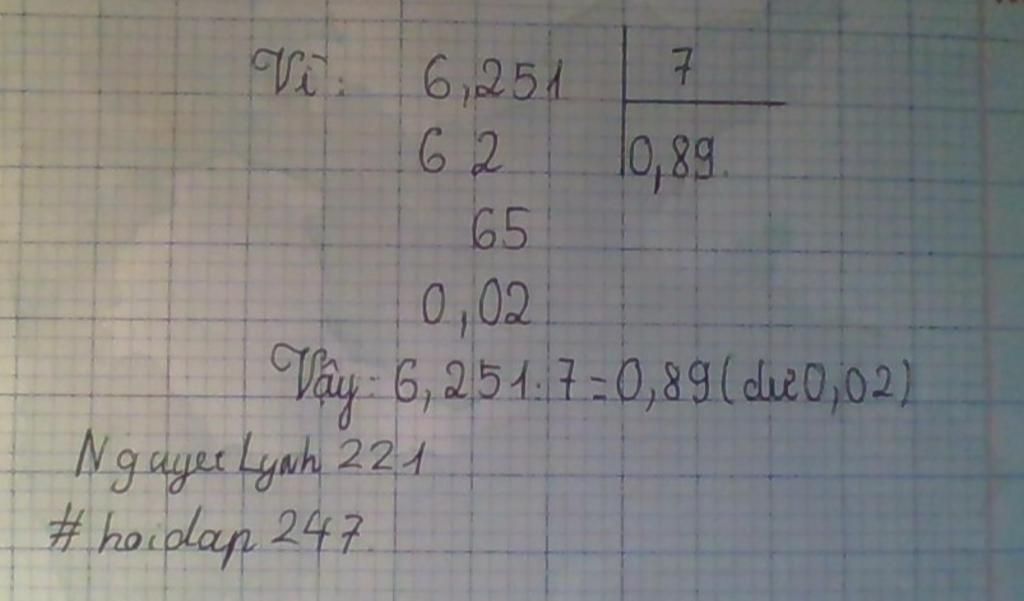 Vì: 6,251 7
6 2 0,89.
65
0,02
Vậy: 6,251:7=0,89(dư 0,02)
Nguyet Lynh 221
# hoidap 247